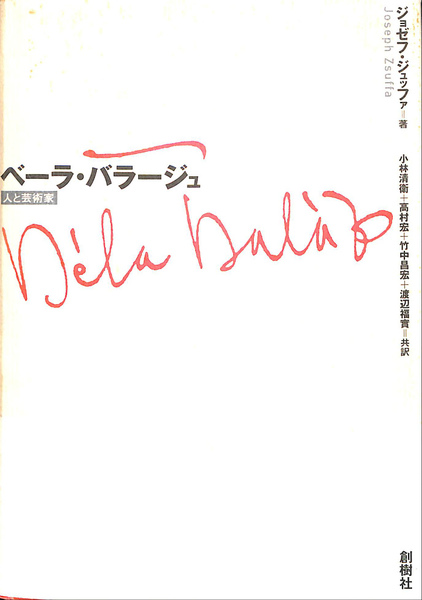 ジョゼフ・ジュッファ=著
Joseph Zsuffa
小林清衛+高村宏+竹中昌宏+渡辺福實=共訳
ベーラ・バラージュ
人と芸術家
Béla Balázs
創樹社